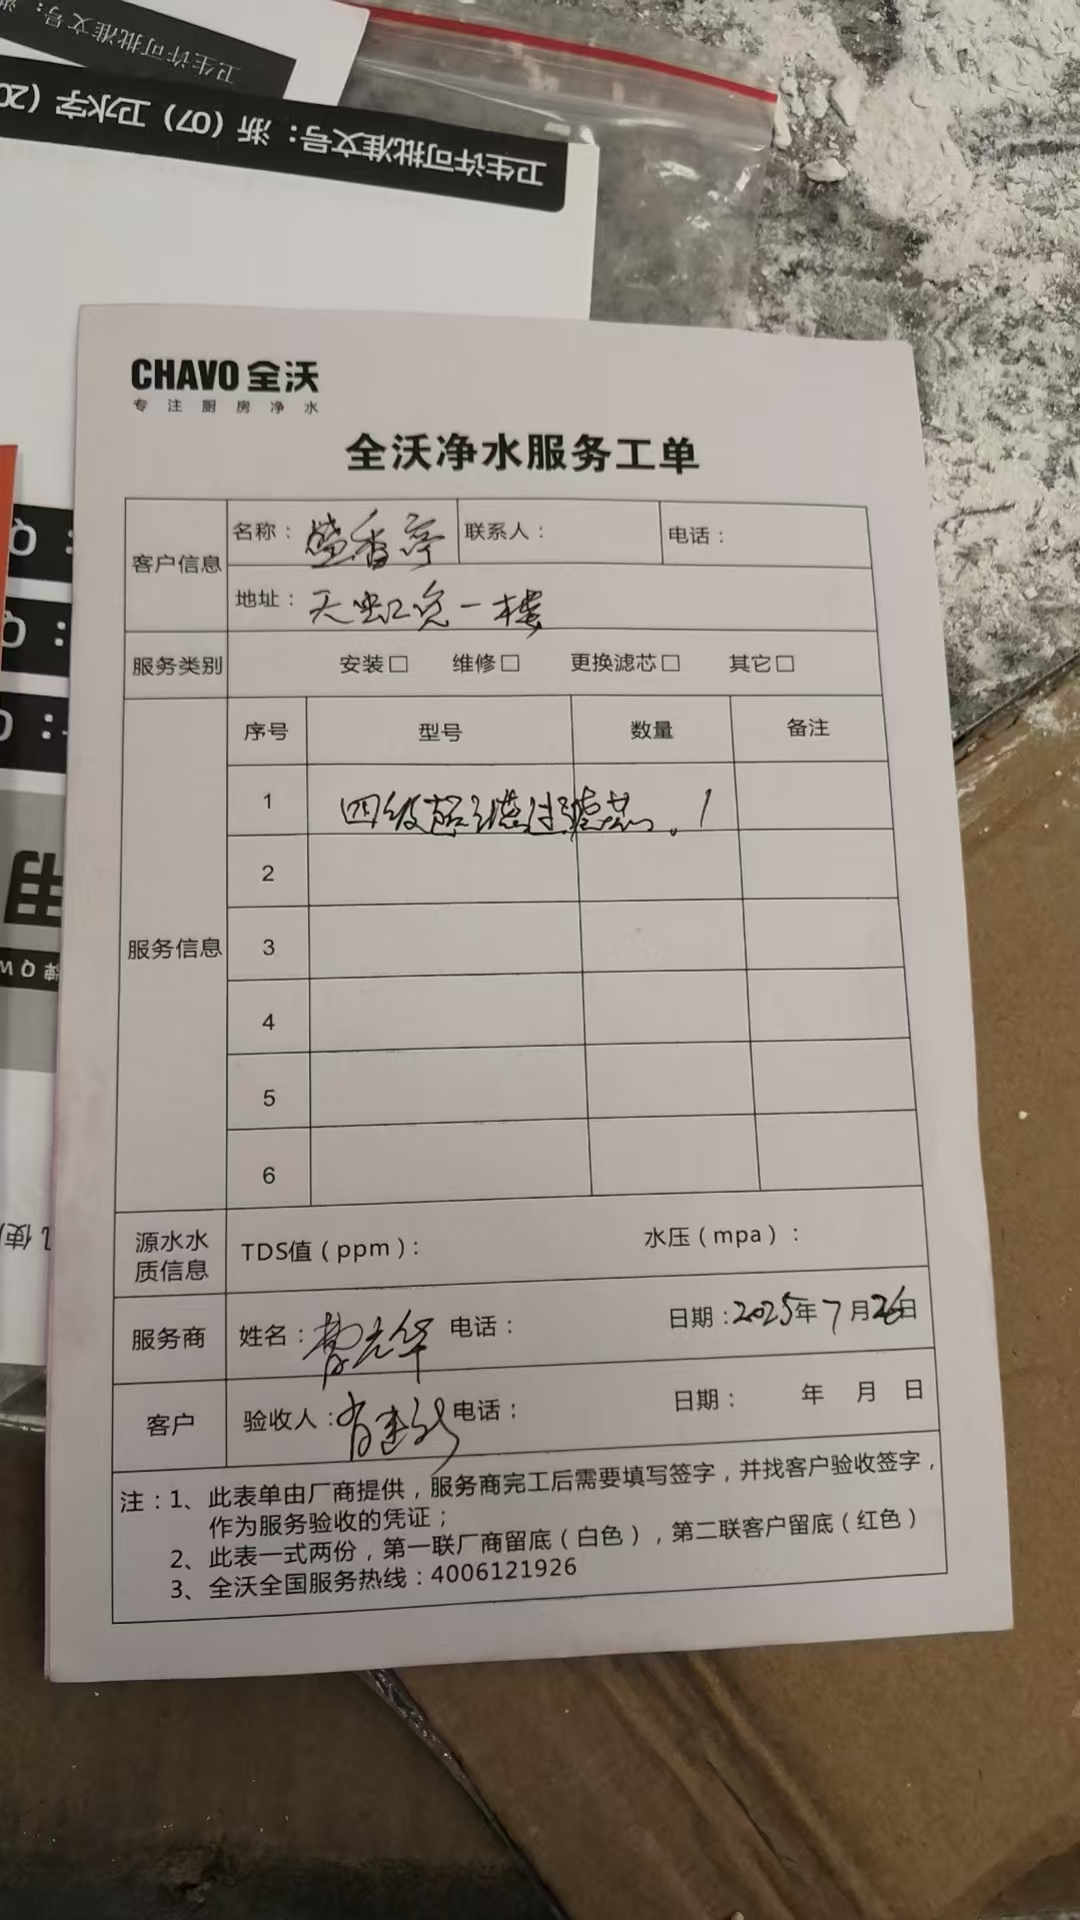 卫生许可批准文号:
卫生许可批准文号:浙(07)卫水字(20
CHAVO 全沃
专注厨房净水
全沃净水服务工单
客户信息 名称: 盛香亭 联系人: 电话:
地址: 天虹 一楼
服务类别 安装□ 维修□ 更换滤芯□ 其它□
服务信息 序号 型号 数量 备注
1 四级超滤过滤芯。 1
2
3
4
5
6
源水水质信息 TDS值(ppm): 水压(mpa):
服务商 姓名: 电话: 日期:2025年7月26日
客户 验收人: 电话: 日期: 年 月 日
注:1、此表单由厂商提供,服务商完工后需要填写签字,并找客户验收签字,
作为服务验收的凭证;
2、此表一式两份,第一联厂商留底(白色),第二联客户留底(红色)
3、全沃全国服务热线:4006121926